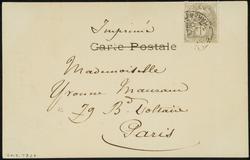 Imprimé
Carte Postale
Mademoiselle
Yvonne
79 Bd Voltaire
Paris